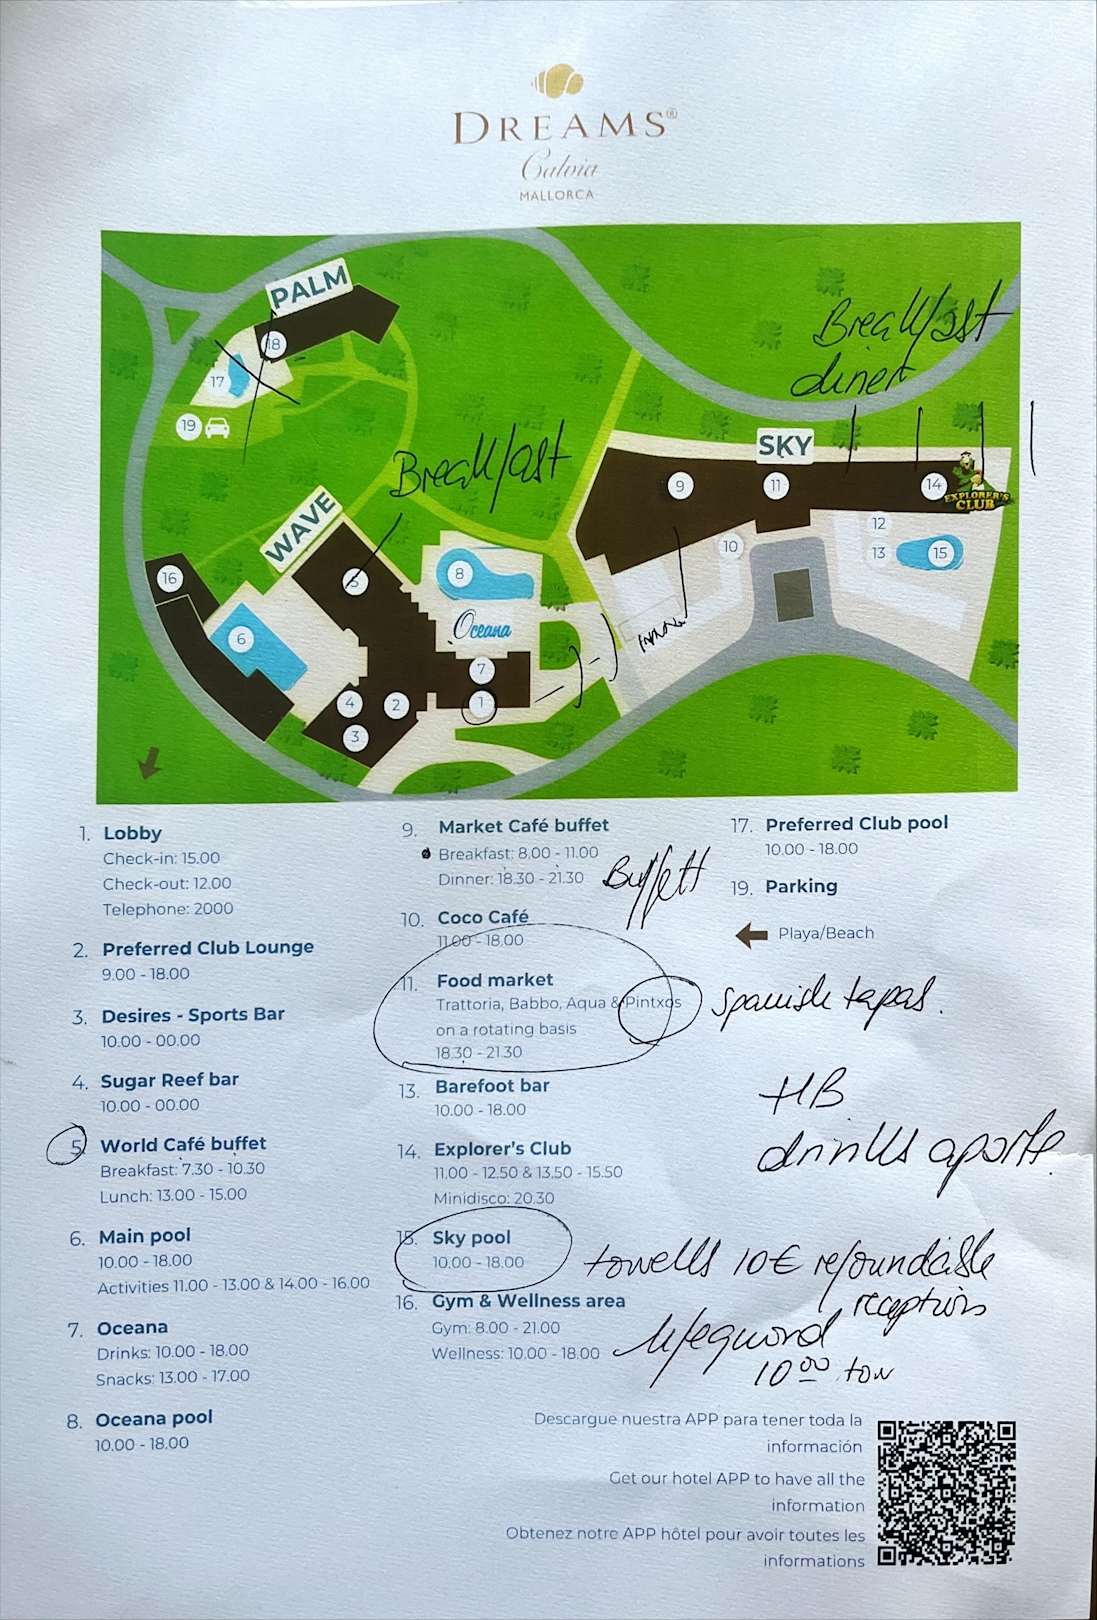 DREAMS®
Calvia
MALLORCA
PALM
18
17
19
Breakfast
diner
Breakfast
SKY
9
11
14
EXPLORER'S
CLUB
WAVE
12
10
13
15
16
5
8
6
Oceana
7
4
2
1
3
1. Lobby
Check-in: 15.00
Check-out: 12.00
Telephone: 2000
2. Preferred Club Lounge
9.00 - 18.00
3. Desires - Sports Bar
10.00 - 00.00
4. Sugar Reef bar
10.00 - 00.00
5. World Café buffet
Breakfast: 7.30 - 10.30
Lunch: 13.00 - 15.00
6. Main pool
10.00 - 18.00
Activities 11.00 - 13.00 & 14.00 - 16.00
7. Oceana
Drinks: 10.00 - 18.00
Snacks: 13.00 - 17.00
8. Oceana pool
10.00 - 18.00
9. Market Café buffet
Breakfast: 8.00 - 11.00
Dinner: 18.30 - 21.30
Buffett
10. Coco Café
11.00 - 18.00
11. Food market
Trattoria, Babbo, Aqua & Pintxos
on a rotating basis
18.30 - 21.30
13. Barefoot bar
10.00 - 18.00
14. Explorer's Club
11.00 - 12.50 & 13.50 - 15.50
Minidisco: 20.30
15. Sky pool
10.00 - 18.00
16. Gym & Wellness area
Gym: 8.00 - 21.00
Wellness: 10.00 - 18.00
17. Preferred Club pool
10.00 - 18.00
19. Parking
Playa/Beach
Spanish tapas.
HB
drinks aparte.
towells 10€ refoundable
receptions
lifeguard
10⁰⁰
Descargue nuestra APP para tener toda la
información
Get our hotel APP to have all the
information
Obtenez notre APP hôtel pour avoir toutes les
informations